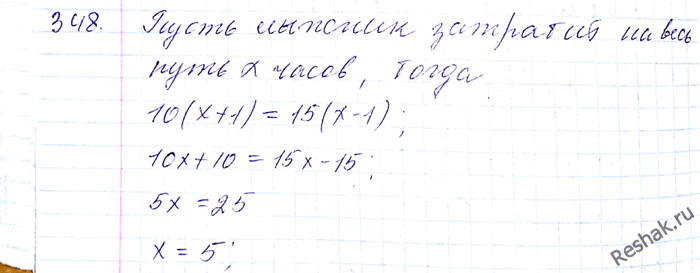 348. Пусть лыжник затратит на весь
путь x часов, тогда
10(x+1) = 15(x-1);
10x+10 = 15x-15;
5x = 25
x = 5;
Reshak.ru